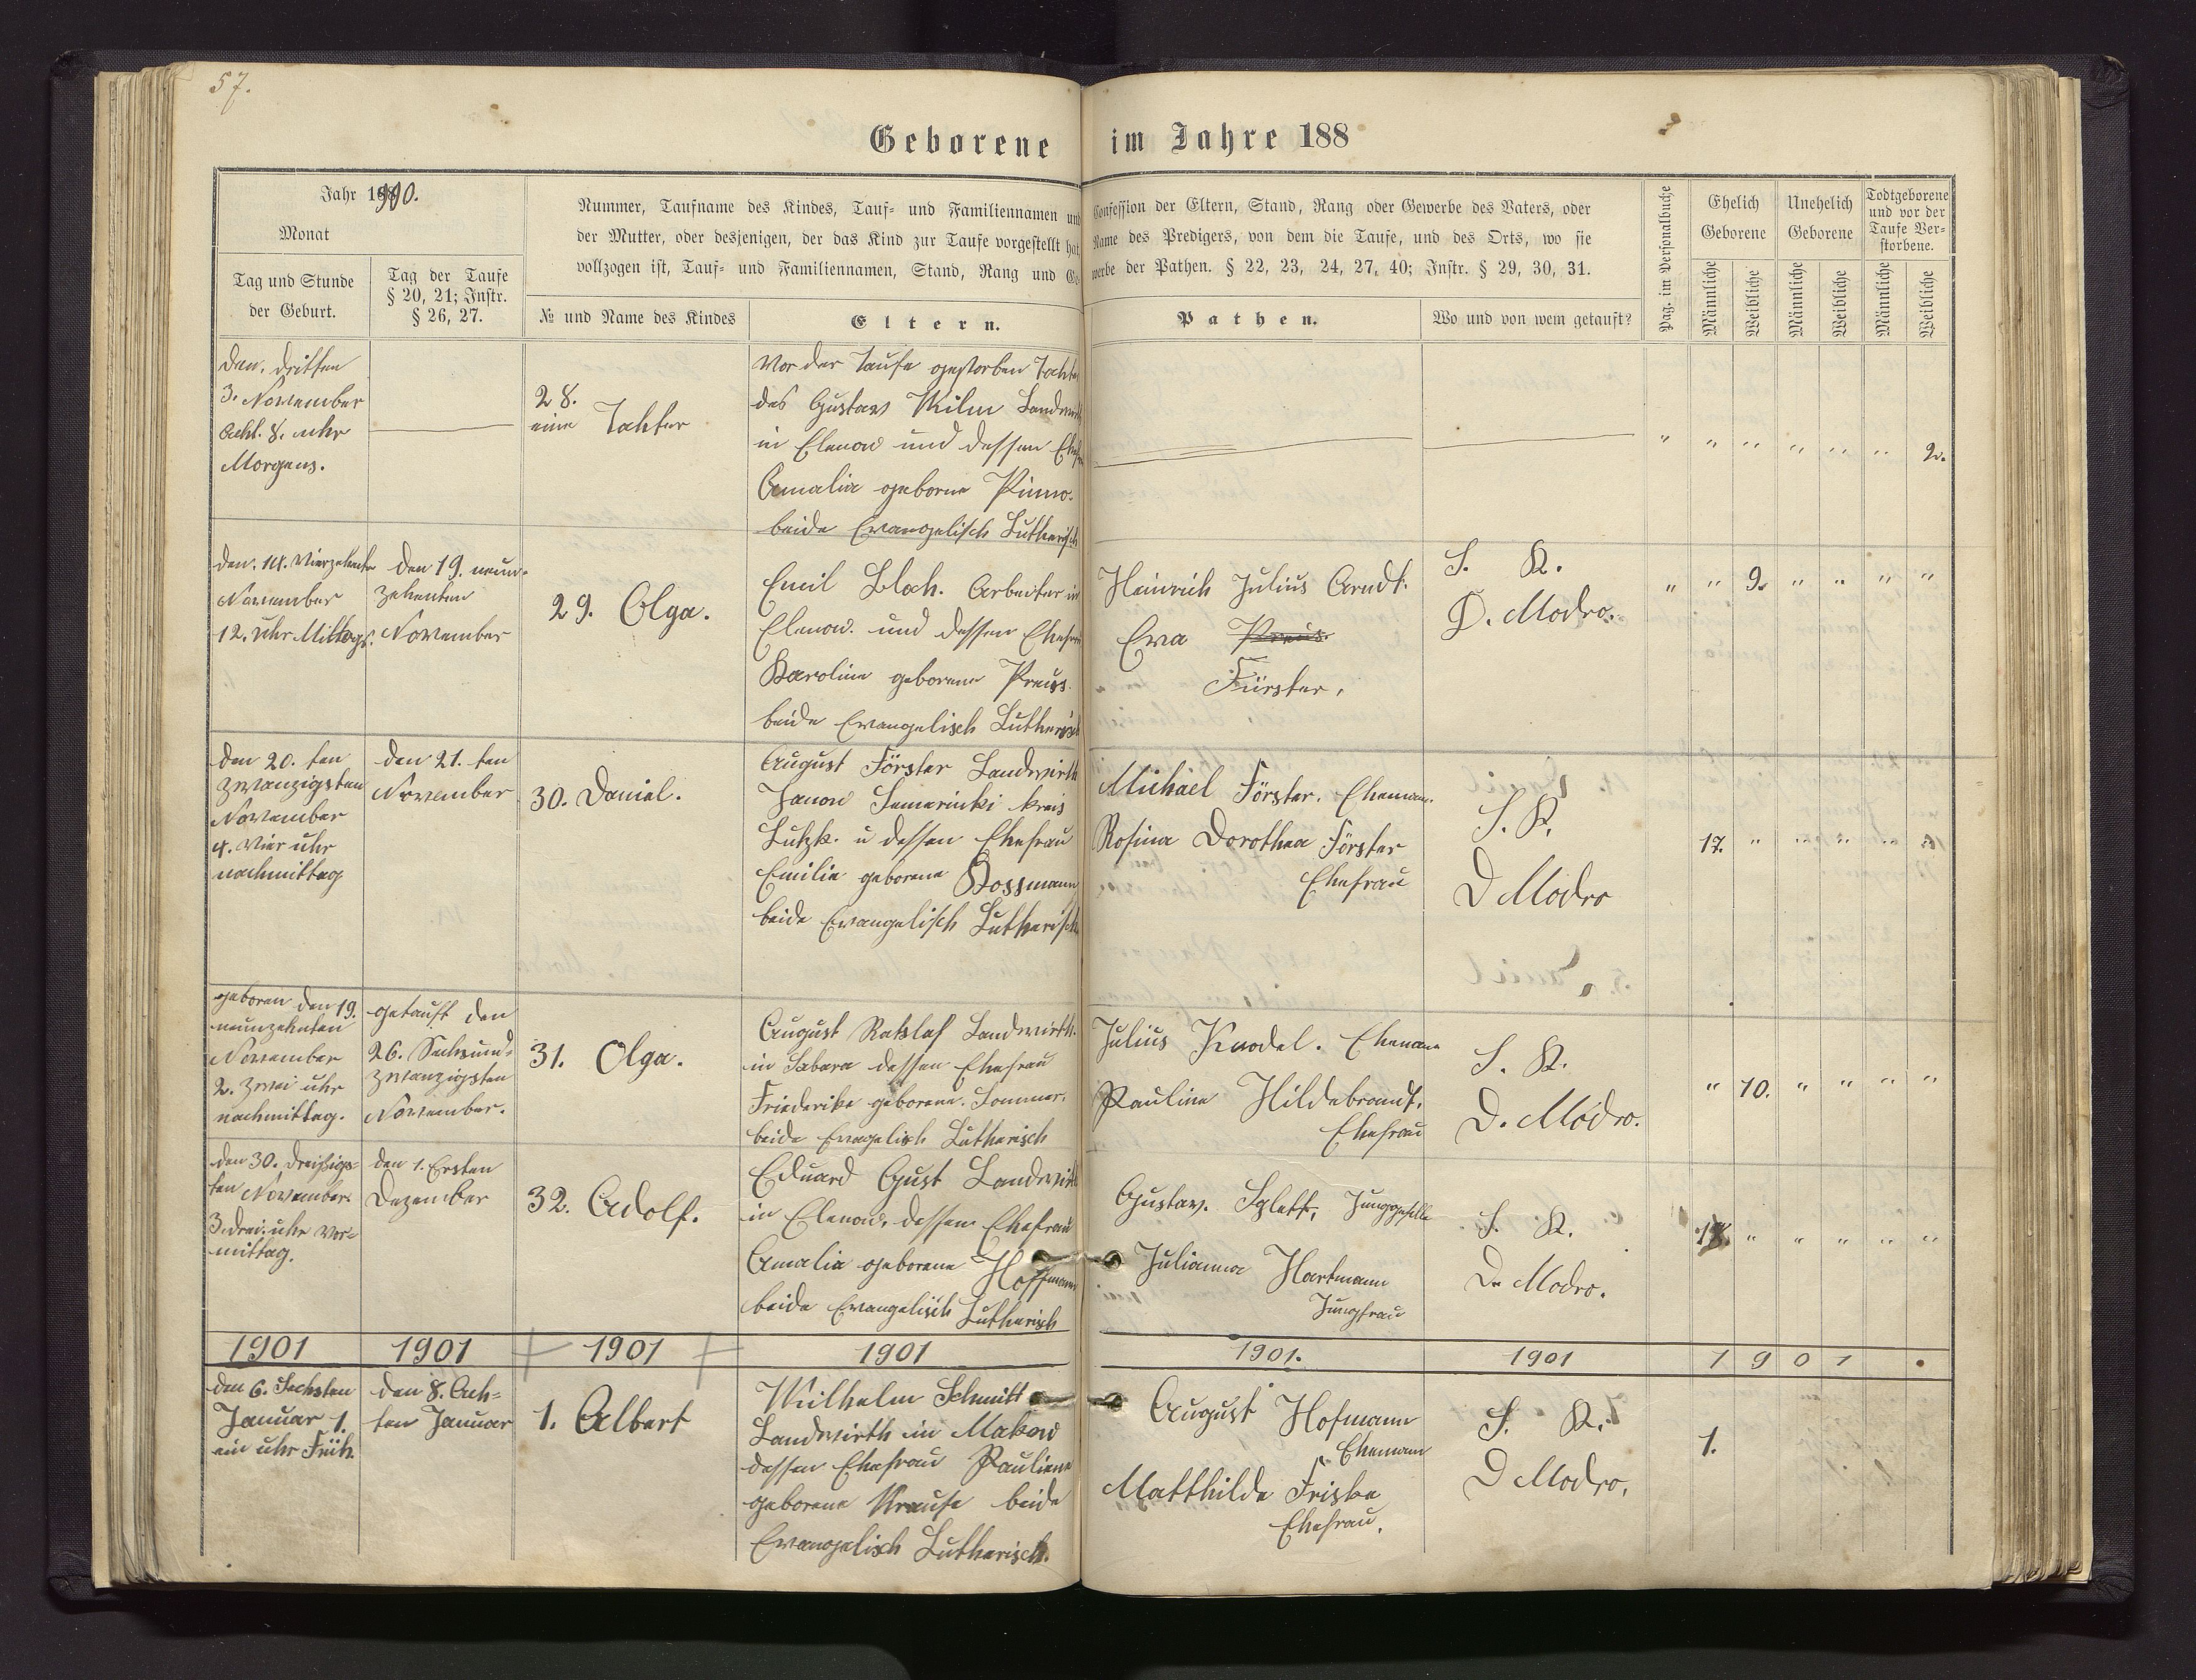 57.
Geborene im Jahre 188
Jahr 1900.
Monat
Tag und Stunde
der Geburt.
Tag der Taufe
§ 20, 21; Instr.
§ 26, 27.
Nummer, Taufname des Kindes, Tauf- und Familiennamen und
der Mutter, oder desjenigen, der das Kind zur Taufe vorgestellt hat,
vollzogen ist, Tauf- und Familiennamen, Stand, Rang und Ge-
№ und Name des Kindes
Eltern.
Confession der Eltern, Stand, Rang oder Gewerbe des Vaters, oder
Name des Predigers, von dem die Taufe, und des Orts, wo sie
werbe der Pathen. § 22, 23, 24, 27, 40; Instr. § 29, 30, 31.
Pathen.
Wo und von wem getauft?
Pag. im Personalbuche
Ehelich
Geborene
Unehelich
Geborene
Todtgeborene
und vor der
Taufe Ver-
storbene.
Männliche
Weibliche
Männliche
Weibliche
Männliche
Weibliche
den, dritten
3. November
Acht. 8. uhr
Morgens.
28.
eine Tochter
Vor der Taufe gestorben Tochter
des Gustav Wilm Landwirth
in Elenow und dessen Ehefrau
Amalia geborne Pinno.
beide Evangelisch Lutherisch
2.
den. 14. Vierzehnte
November
12. Uhr Mittags.
den 19. neun-
zehenten
November
29. Olga.
Emil Bloch. Arbeiter in
Elenow. und dessen Ehefrau
Karoline geborene Preuss.
beide Evangelisch Lutherisch
Heinrich Julius Arndt.
Ewa Preus.
Fürster,
S. K.
D. Modro.
9.
den 20. ten
zwanzigsten
November
4. Vier uhr
nachmittag
den 21. ten
November
30. Daniel.
August Förster Landwirth
Janow Semerinki kreis
Lutzk. u dessen Ehefrau
Emilie geborene Kossmann
beide Evangelisch Lutherisch
Michael Förster. Ehemann.
Rosina Dorothea Förster
Ehefrau
S. K.
D Modro
17.
geboren den 19.
neunzehnten
November
2. zwei uhr
nachmittag.
getauft den
26. Sechsund-
zwanzigsten
November.
31. Olga.
August Ratzlaf Landwirth.
in Sabara dessen Ehefrau
Friederike geborene. Sommer.
beide Evagelisch Lutherisch
Julius Knodel. Ehemann
Pauline Hildebrandt.
Ehefrau
S. K.
D. Modro.
10.
den 30. Dreißigs-
ten November
3. drei. uhr Vor-
mittag.
den 1. Ersten
Dezember
32. Adolf.
Eduard Gust Landwirth
in Elenow, dessen Ehefrau
Amalia geborene Hoffmann
beide Evangelisch Lutherisch
Gustav. Junggeselle
Julianna Hartmann
Jungfrau
S. K.
D. Modro.
1901 1901 1901 1901 1901. 1901 1 9 0 1
den 6. Sechsten
Januar 1.
ein uhr Früh.
den 8. Ach-
ten Januar
1. Albert
Wilhelm Schmitt
Landwirth in Makow
dessen Ehefrau Pauliene
geborene Krause beide
Evangelisch Lutherisch.
August Hofmann
Ehemann
Matthilde Friske
Ehefrau.
S. K.
D Modro.
1.